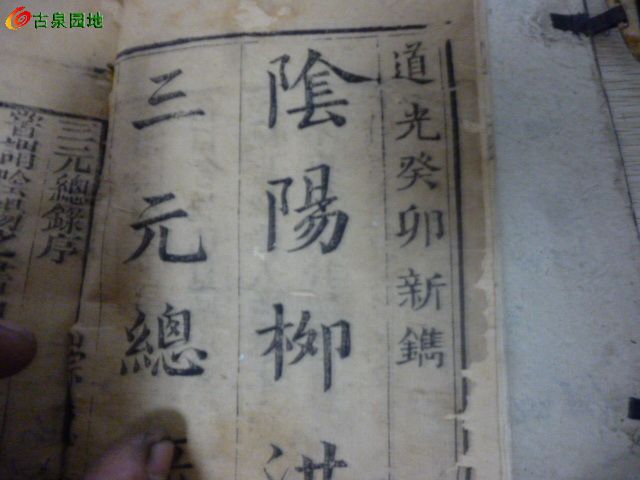 古泉园地
道光癸卯新鐫
陰陽柳洪
三元總
三元總錄序